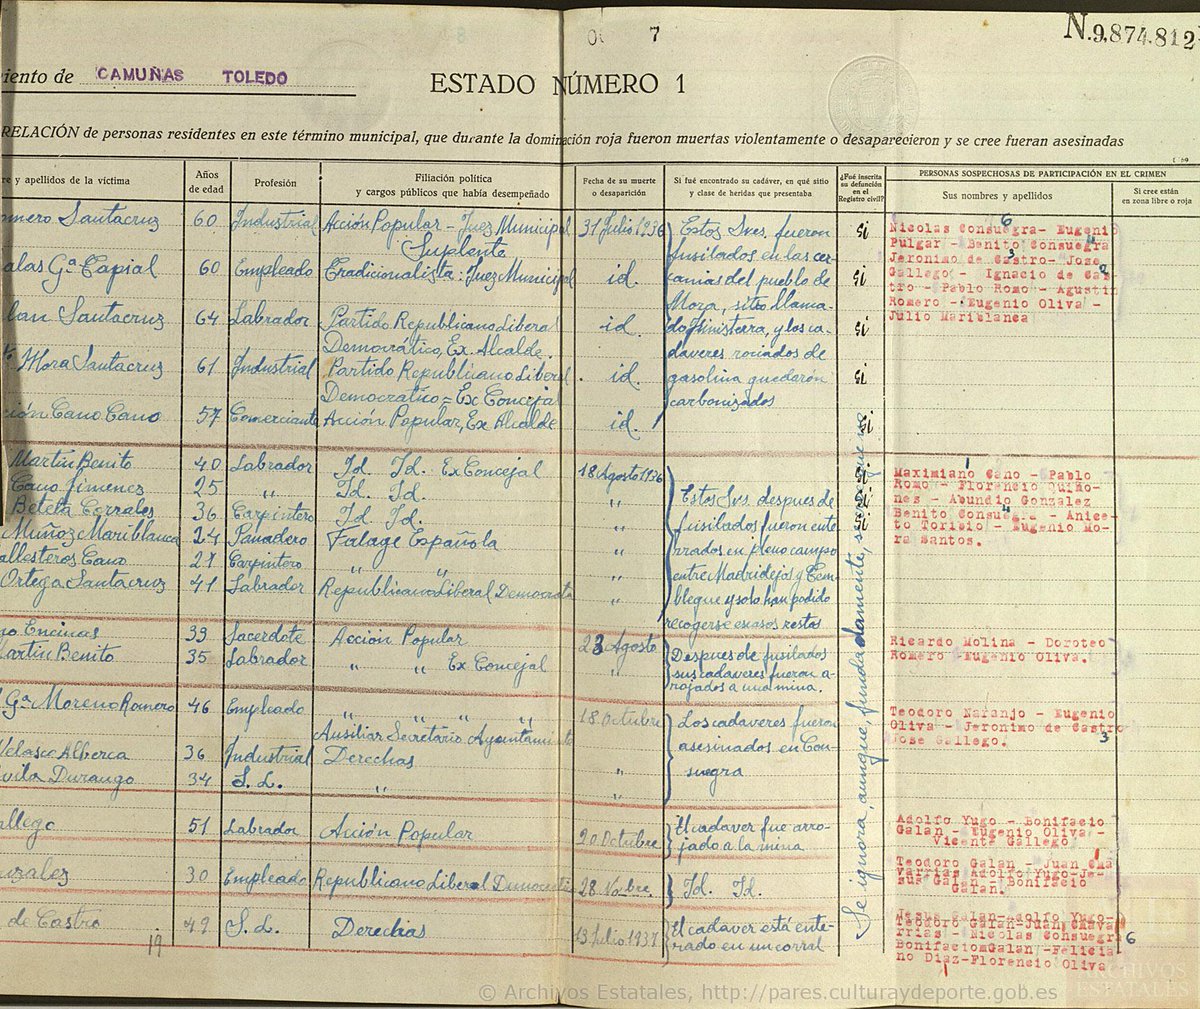 N.9.874.812
7
iento de CAMUÑAS TOLEDO
ESTADO NÚMERO 1
RELACIÓN de personas residentes en este término municipal, que durante la dominación roja fueron muertas violentamente o desaparecieron y se cree fueran asesinadas
re y apellidos de la víctima
Años de edad
Profesión
Filiación política y cargos públicos que había desempeñado
Fecha de su muerte o desaparición
Si fué encontrado su cadáver, en qué sitio y clase de heridas que presentaba
¿Fué inscrita su defunción en el Registro civil?
PERSONAS SOSPECHOSAS DE PARTICIPACIÓN EN EL CRIMEN
Sus nombre y apellidos
Si cree están en zona libre o roja
mero Santacruz 60 Industrial Acción Popular - Juez Municipal Suplente 31 Julio 1936
alas Gª Capial 60 Empleado Tradicionalista. Juez Municipal id.
lan Santacruz 64 Labrador Partido Republicano Liberal Democratico, Ex. Alcalde. id.
Mora Santacruz 61 Industrial Partido Republicano Liberal Democratico = Ex Concejal id.
ción Cano Cano 57 Comerciante Acción Popular, Ex Alcalde id.
Estos Sres. fueron
fusilados en las cer-
canias del pueblo de
Mora, sitio llama-
do Finisterra, y los ca-
daveres rociados de
gasolina quedarón
carbonizados
si
si
si
si
si
Nicolas Consuegra- Eugenio
Pulgar - Benito Consuegra
Jeronimo de Castro- Jose
Gallego - Ignacio de Cas-
tro - Pablo Romo - Agustin
Romero - Eugenio Oliva -
Julio Mariblanca
Martín Benito 40 Labrador Id. Id. Ex Concejal 18 Agosto 1936
Cano Jimenez 25 " Id. Id. "
Beteta Corrales 36 Carpintero Id. Id. "
Muñoz Mariblanca 24 Panadero Falage Española "
allesteros Cano 27 Carpintero " " "
Ortega Santacruz 41 Labrador Republicano Liberal Democrata "
Estos Srs. despues de
fusilados fueron ente-
rrados en pleno campo
entre Madridejos y Tem-
bleque y solo han podido
recogerse escasos restos
si
si
si
Maximiano Cano - Pablo
Romo - Florencio Quiño-
nes - Abundio Gonzalez
Benito Consuegra - Anice-
to Toribio - Eugenio Mo-
ra Santos.
go Encinas 39 Sacerdote Acción Popular 23 Agosto
artín Benito 35 Labrador " " Ex Concejal "
Despues de fusilados
sus cadaveres fueron a-
rojados a una mina.
Ricardo Molina - Doroteo
Romero - Eugenio Oliva.
Gª Moreno Romero 46 Empleado " " " " Ausiliar Secretario Ayuntamiento 18 Octubre
Velasco Alberca 36 Industrial Derechas "
vila Durango 34 S. L. " "
Los cadaveres fueron
asesinados en Con-
suegra
Teodoro Naranjo - Eugenio
Oliva - Jeronimo de Castro
Jose Gallego.
allego 51 Labrador Acción Popular 20 Octubre
El cadaver fue arro-
jado a la mina
Adolfo Yugo - Bonifacio
Galan - Eugenio Oliva -
Vicente Gallego
nzalez 30 Empleado Republicano Liberal Democratico 28 Novbre. Id. Id.
Teodoro Galan - Juan Cha-
varrias Adolfo Yugo-Je-
sus Galan - Bonifacio
Galan.
de Castro 49 S. L. Derechas 13 Julio 1937
El cadaver está ente-
rado en un corral
Jesus Galan-Adolfo Yugo-
Teodoro Galan-Juan Chava
rrias - Nicolas Consuegra
BonifacionGalan -Felicia-
no Diaz-Florencio Oliva
Se ignora, aunque, fundadamente, se cree que
19
© Archivos Estatales, http://pares.culturaydeporte.gob.es
ARCHIVOS
ESTATALES